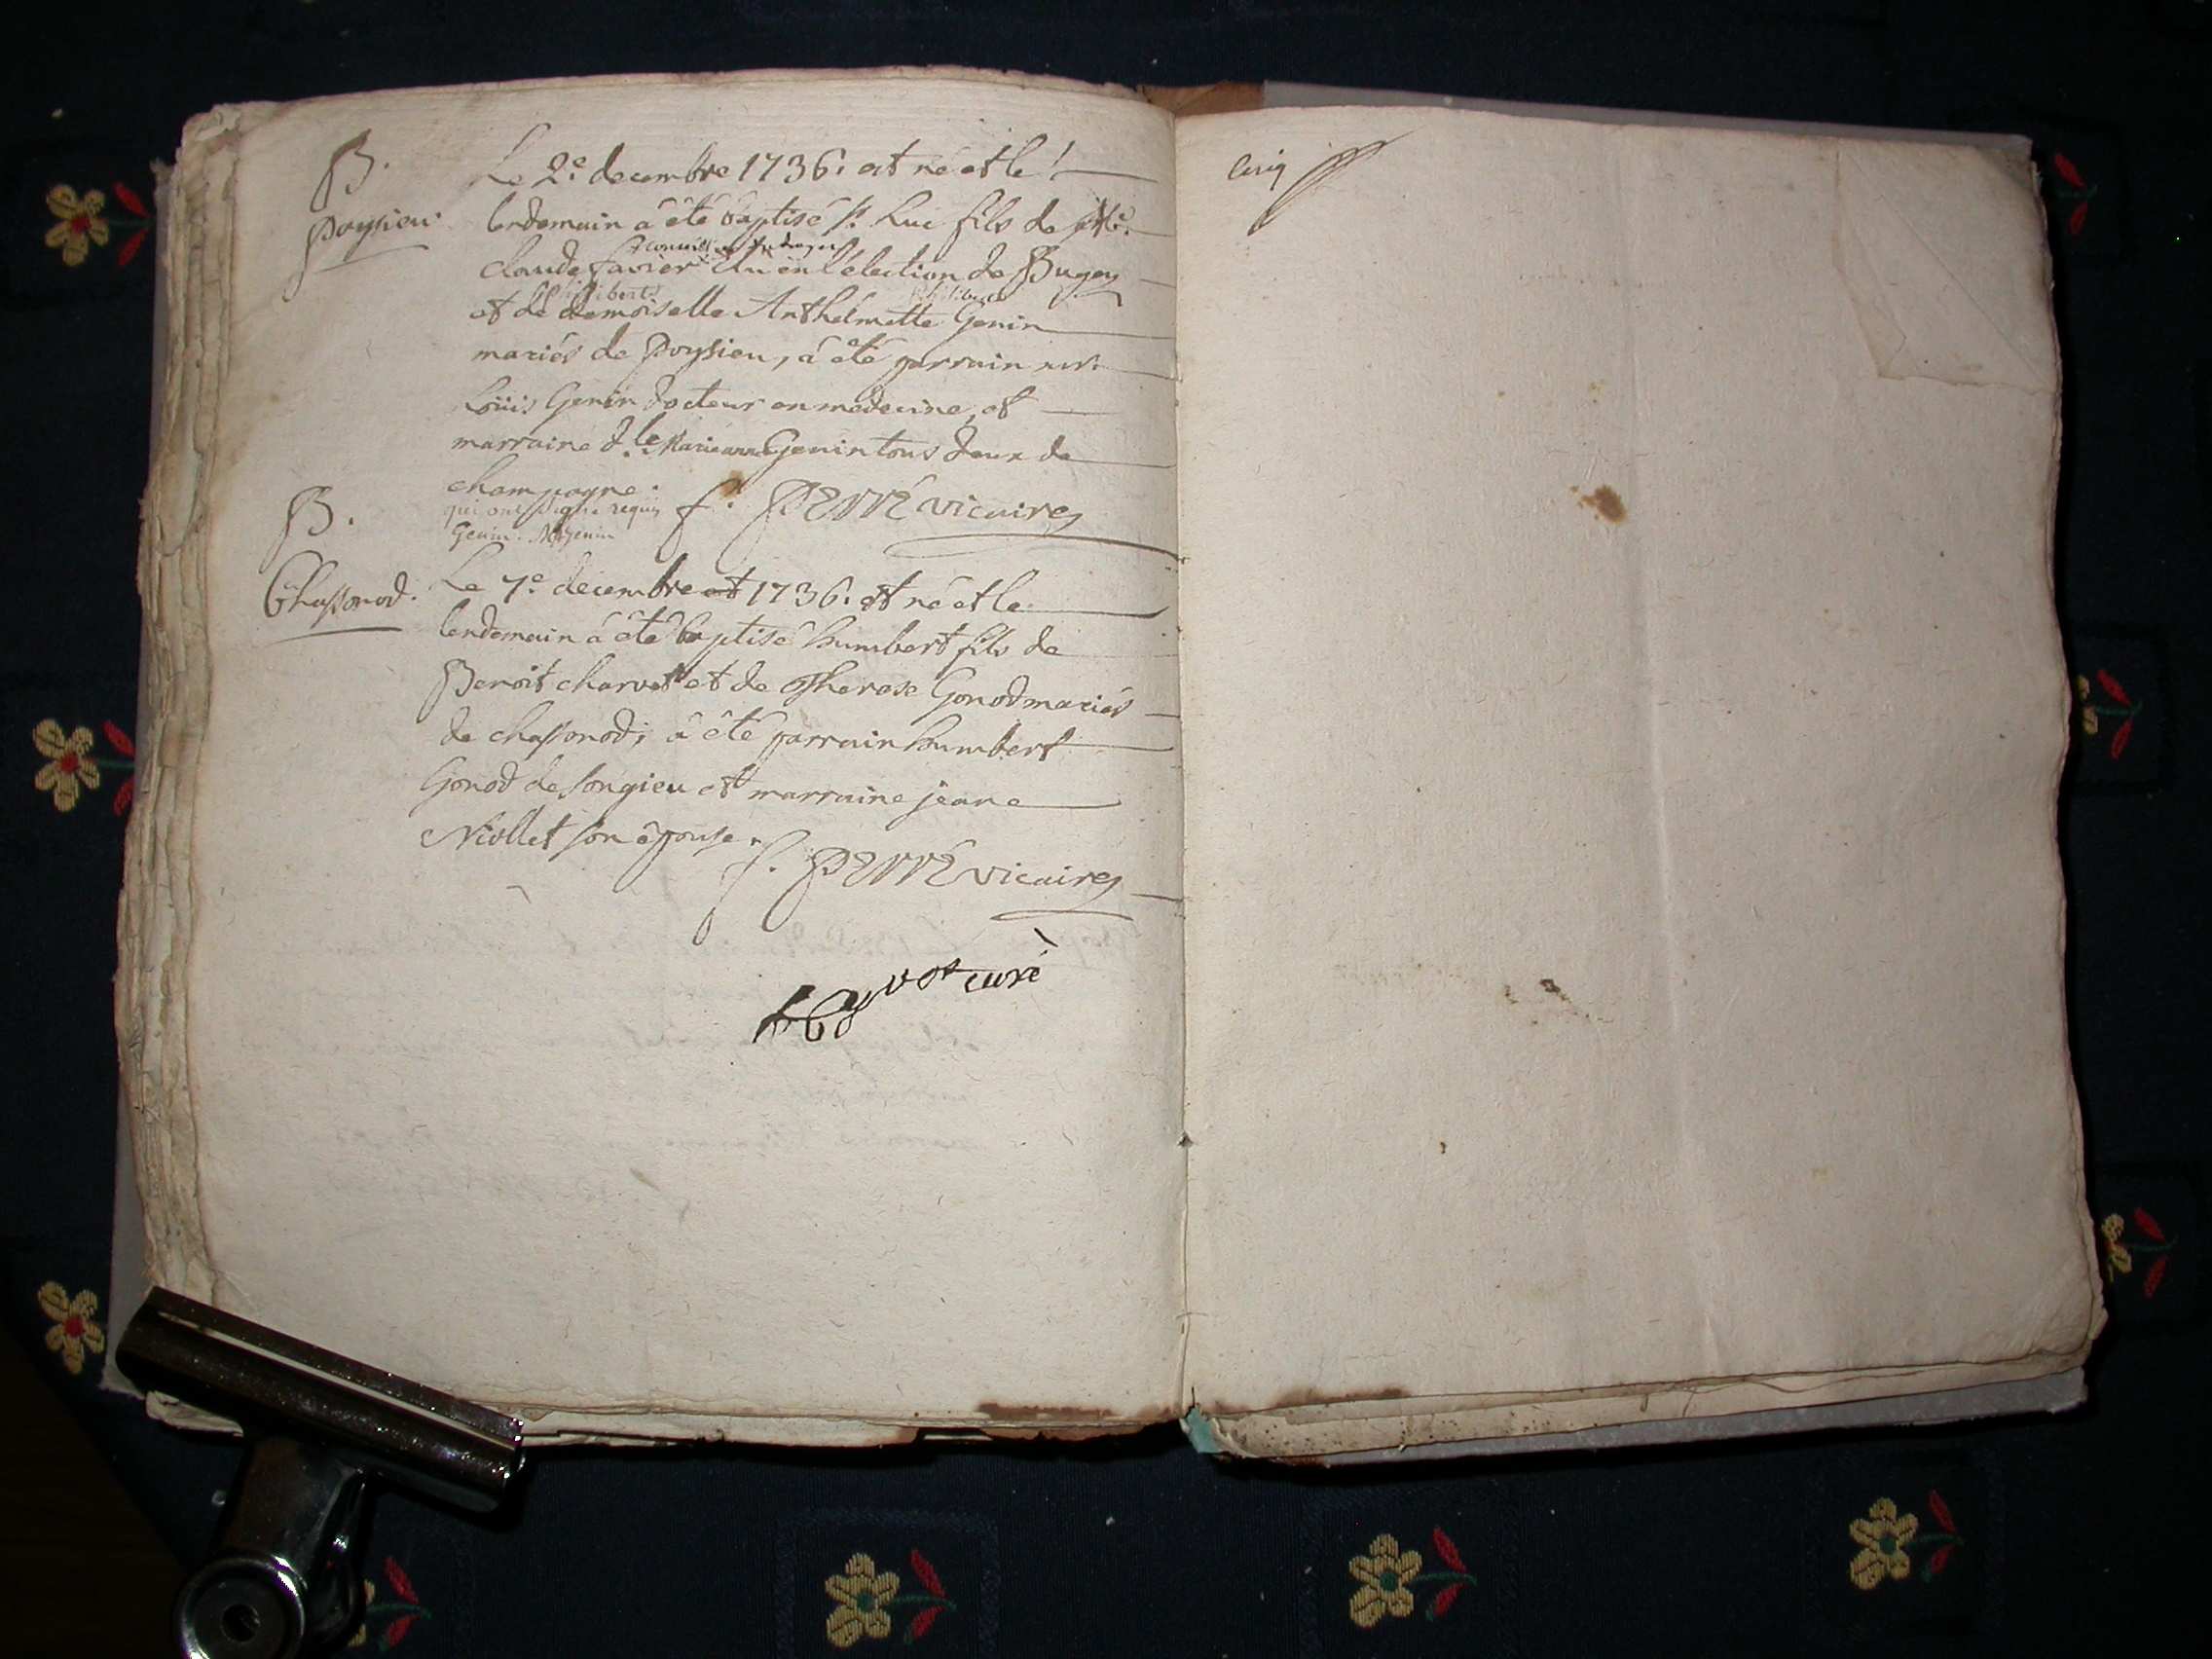 B.
Poysieu.
Le 2e decembre 1736. est né et le
lendemain à été baptisé Luc fils de
claude favier Elu en l'élection de Bugey
philibert philiberte
et de demoiselle Anthelmette Genin
mariés de Poysieu, à été parrain
Loüis Genin docteur en médecine, et
marraine dlle Marieanne Genin tous deux de
champagne.
qui ont signé requis
Genin. M Genin
f. PERRÉ vicaire
B.
Chassonod.
Le 7e decembre et 1736. est né et le
lendemain à été baptisé humbert fils de
Benoit charvet et de Therese Gonod mariés
de chassonod, à été parrain humbert
Gonod de songieu et marraine jeane
Niollet son épouse.
f. PERRÉ vicaire
curé
cinq